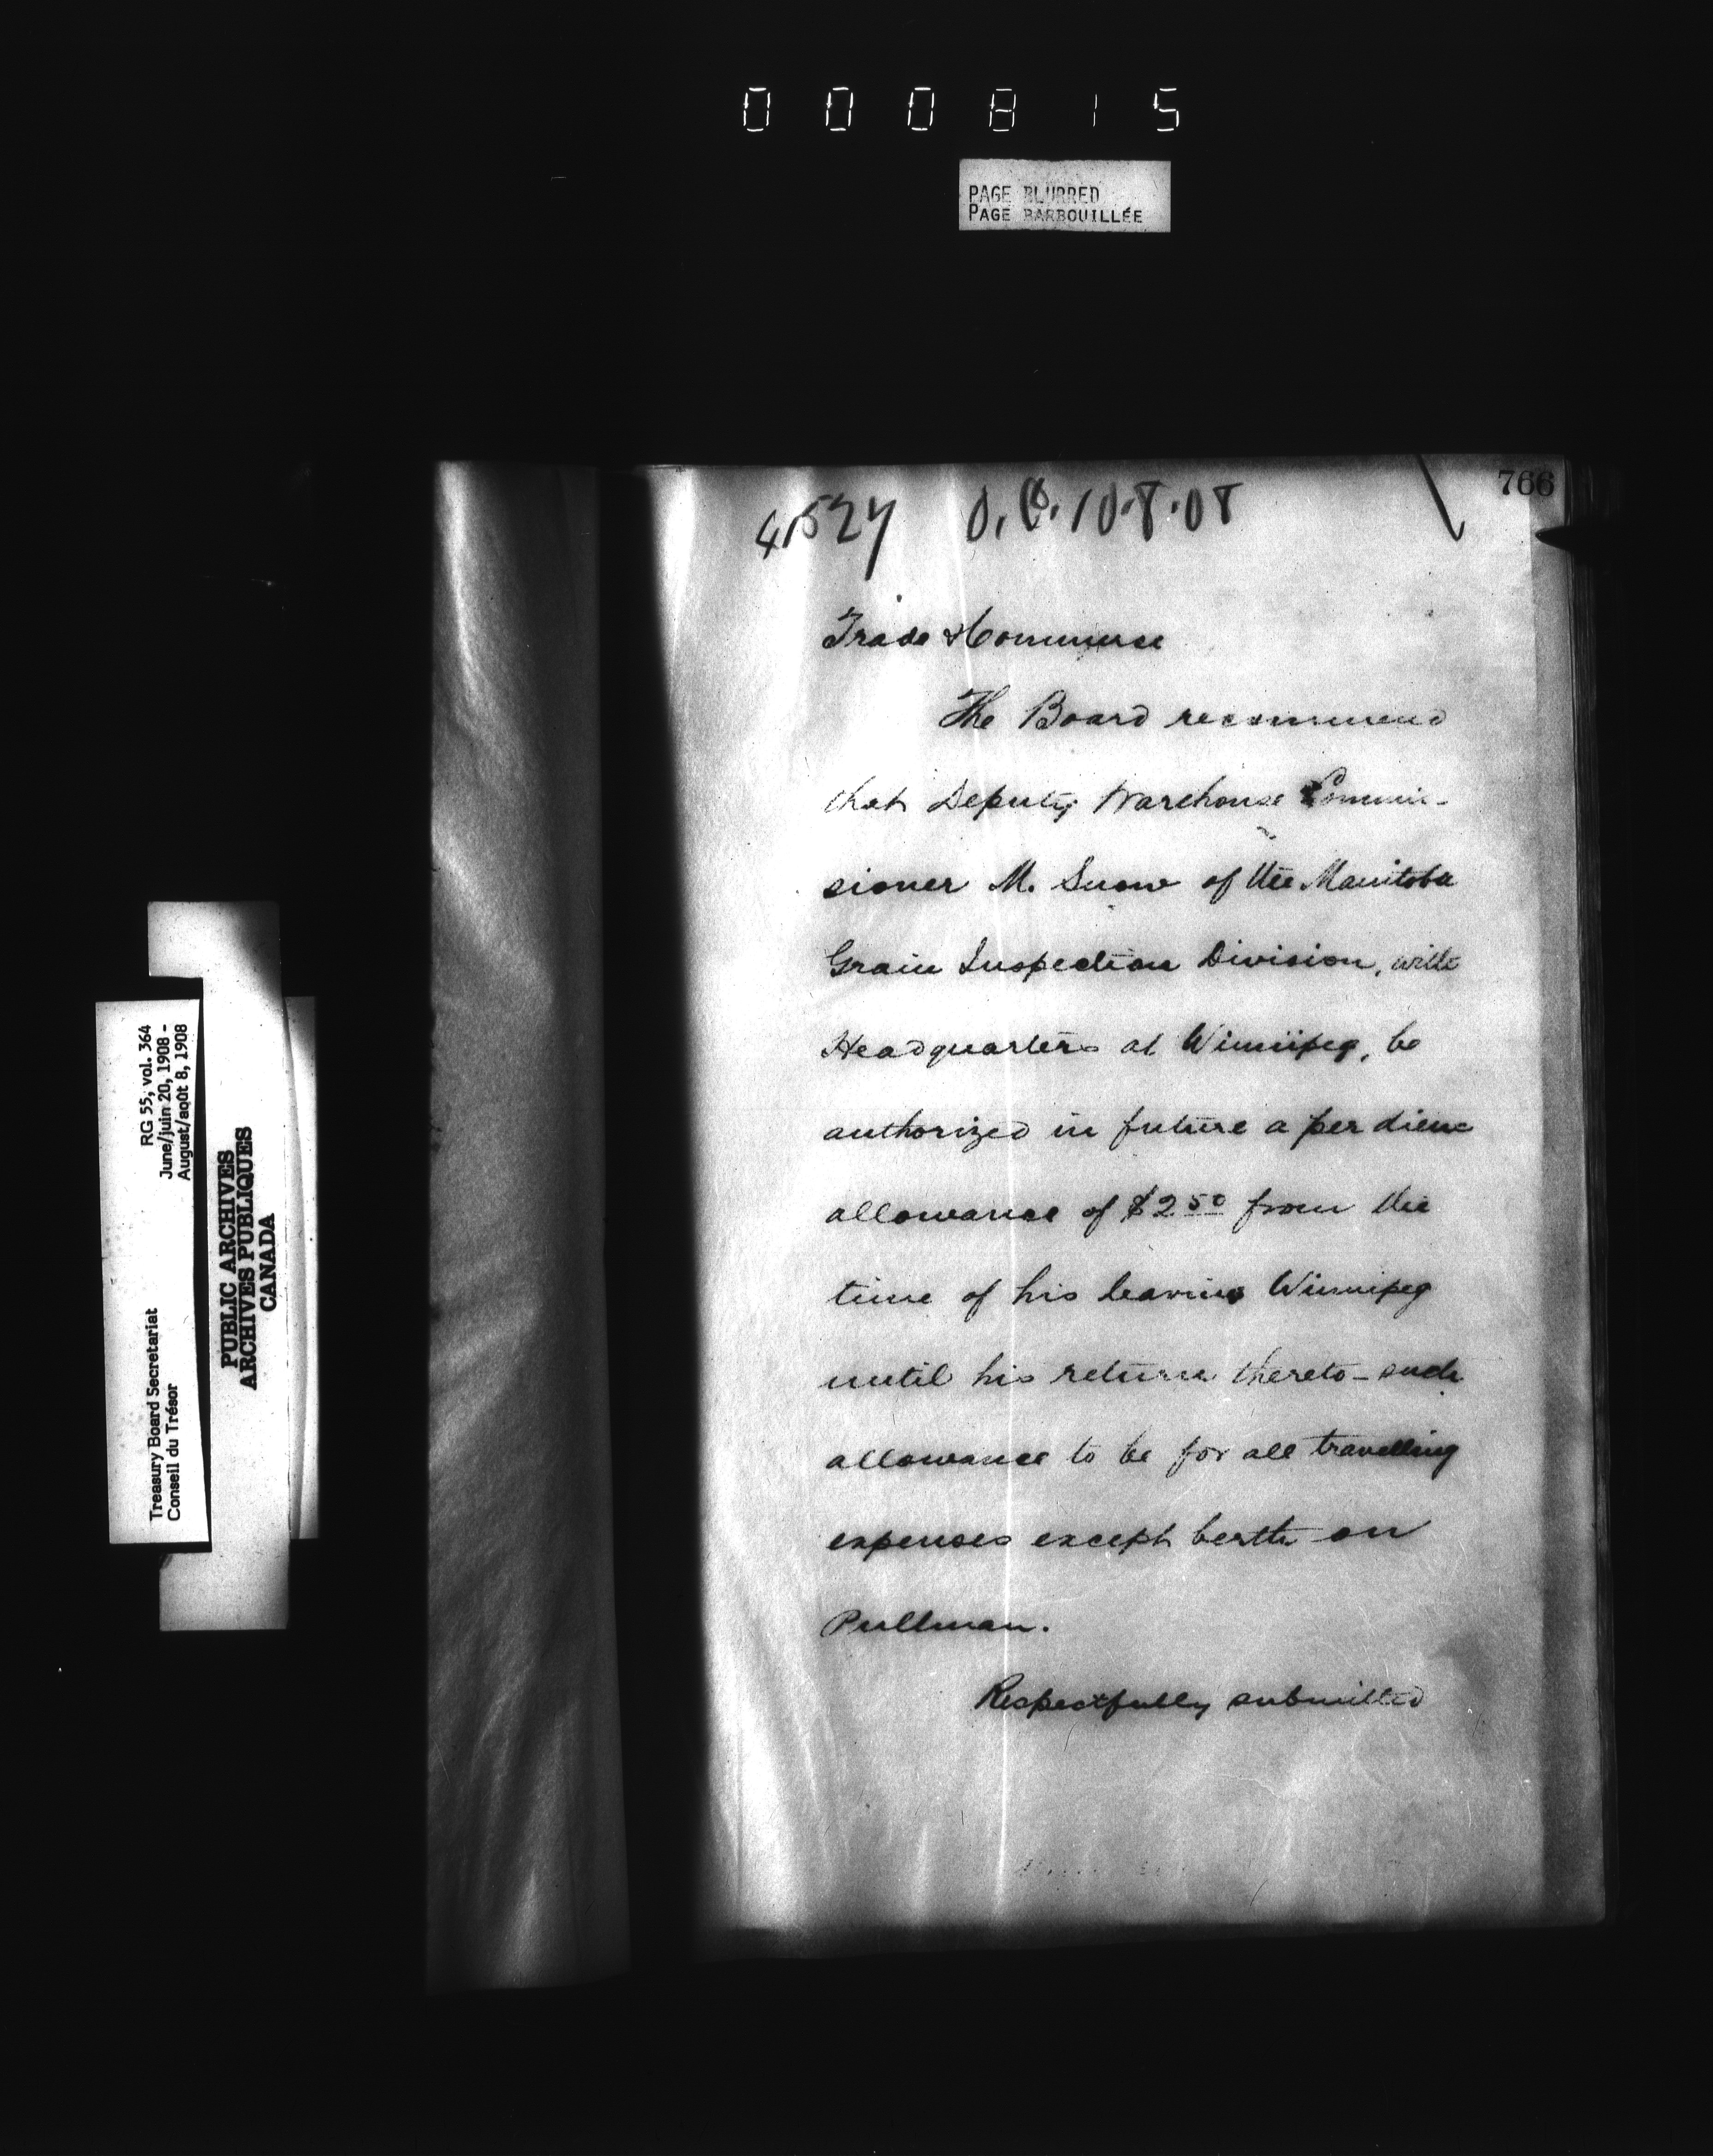 000815
PAGE BLURRED
PAGE BARBOUILLÉE
766
41527 O.C. 10.8.08
Trade & Commerce
The Board recommend
that Deputy Warehouse Commis-
sioner M. Snow of the Manitoba
Grain Inspection Division, with
Headquarters at Winnipeg, be
authorized in future a per diem
allowance of $2.50 from the
time of his leaving Winnipeg
until his return thereto - such
allowance to be for all travelling
expenses except berth on
Pullman.
Respectfully submitted
Treasury Board Secretariat
Conseil du Trésor
RG 55, vol. 364
June/juin 20, 1908 -
August/août 8, 1908
PUBLIC ARCHIVES
ARCHIVES PUBLIQUES
CANADA